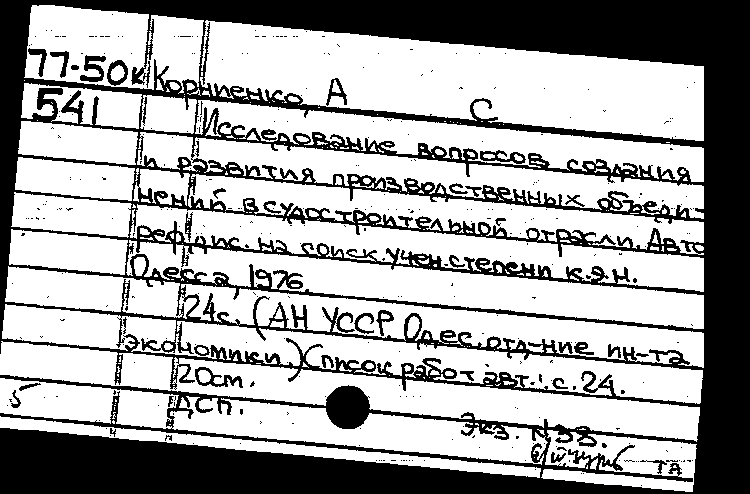 77-50к Корниенко, А С
541
Исследование вопросов создания
и развития производственных объеди-
нений в судостроительной отрасли. Авто
реф дис. на соиск. учен. степени к.э.н.
Одесса, 1976.
24с. (АН УССР. Одес. отд-ние ин-та
экономики.) Список работ авт.: с. 24.
20см.
5 ДСП.
Экз. N38.
ТА